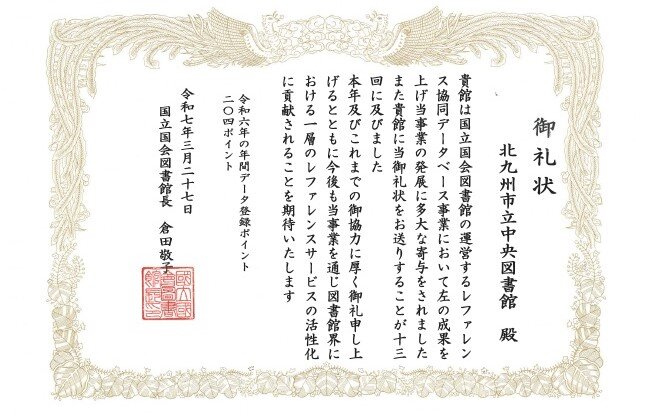 御礼状
北九州市立中央図書館 殿
貴館は国立国会図書館の運営するレファレン
ス協同データベース事業において左の成果を
上げ当事業の発展に多大な寄与をされました
また貴館に当御礼状をお送りすることが十三
回に及びました
本年及びこれまでの御協力に厚く御礼申し上
げるとともに今後も当事業を通じ図書館界に
おける一層のレファレンスサービスの活性化
に貢献されることを期待いたします
令和六年の年間データ登録ポイント
二〇四ポイント
令和七年三月二十七日
国立国会図書館長 倉田敬子